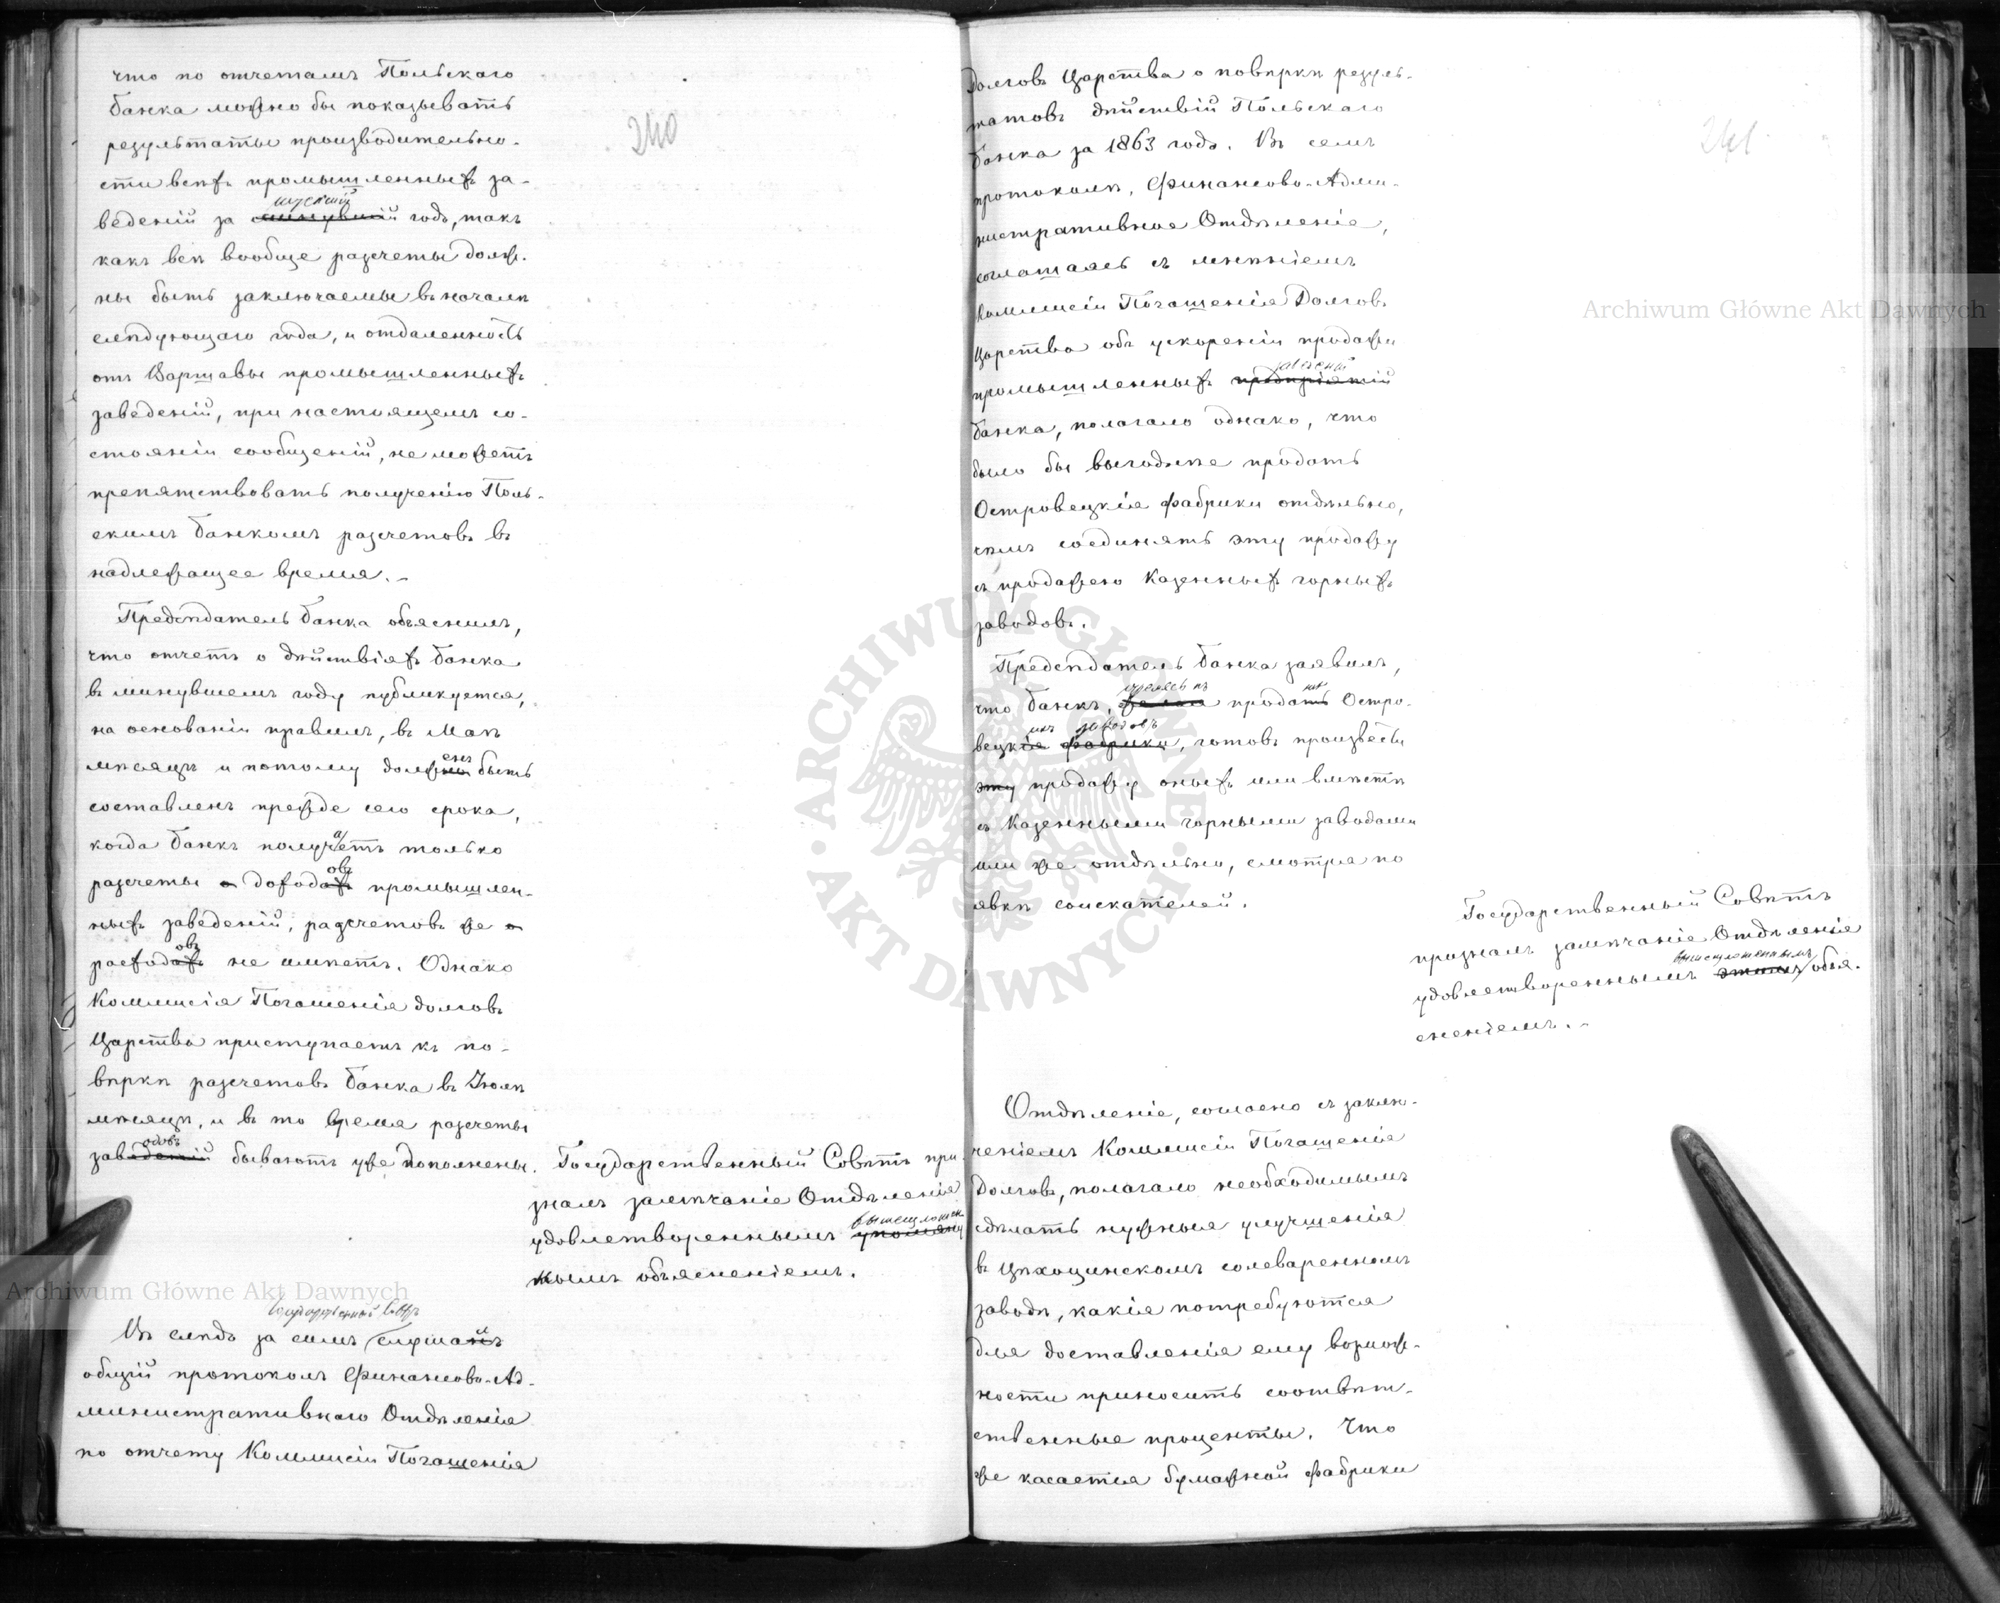 240
что по отчетамъ Польскаго
банка можно бы показывать
результаты производительно-
сти всѣхъ промышленныхъ за-
истекшій
веденій за минувшій годъ, такъ
какъ всѣ вообще разсчеты долж-
ны быть заключаемы въ началѣ
слѣдующаго года, и отдаленность
отъ Варшавы промышленныхъ
заведеній, при настоящемъ со-
стояніи сообщеній, не можетъ
препятствовать полученію Поль-
скимъ банкомъ разсчетовъ въ
надлежащее время.
Предсѣдатель банка объяснилъ,
что отчетъ о дѣйствіяхъ банка
въ минувшемъ году публикуется,
на основаніи правилъ, въ Маѣ
мѣсяцѣ и потому долженъ быть
составленъ прежде сего срока,
когда банкъ получаетъ только
овъ
разсчеты о доходахъ промышлен-
ныхъ заведеній, разсчетовъ же о
овъ
расходахъ не имѣетъ. Однако
Коммисія Погашенія долговъ
Царства приступаетъ къ по-
вѣркѣ разсчетовъ банка въ Іюлѣ
мѣсяцѣ, и въ то время разсчеты
одовъ
заведеній бываютъ уже пополнены.
Государственный Совѣтъ при-
зналъ замѣчаніе Отдѣленія
вышеизложен
удовлетвореннымъ упомяну
нымъ объясненіемъ.
Государственный Совѣтъ
Въ слѣдъ за симъ слушанъ
общій протоколъ Финансово-Ад-
министративнаго Отдѣленія
по отчету Коммисіи Погашенія
241
Долговъ Царства о повѣркѣ резуль-
татовъ дѣйствій Польскаго
банка за 1863 годъ. Въ семъ
протоколѣ, Финансово-Адми-
нистративное Отдѣленіе,
соглашаясь съ мнѣніемъ
Коммисіи Погашенія Долговъ
Царства объ ускореніи продажи
заведеній
промышленныхъ предпріятій
банка, полагало однако, что
было бы выгоднѣе продать
Островецкія фабрики отдѣльно,
чѣмъ соединять эту продажу
съ продажею Казенныхъ горныхъ
заводовъ.
Предсѣдатель банка заявилъ,
что банкъ, желая продать Остро-
ихъ заводовъ
вецкія фабрики, готовъ произвести
эту продажу оныхъ или вмѣстѣ
съ Казенными горными заводами
или же отдѣльно, смотря по
явкѣ соискателей.
Государственный Совѣтъ
призналъ замѣчаніе Отдѣленія
вышеизложеннымъ
удовлетвореннымъ этимъ объя-
сненіемъ.
Отдѣленіе, согласно съ заклю-
ченіемъ Коммисіи Погашенія
Долговъ, полагало необходимымъ
сдѣлать нужныя улучшенія
въ Цѣхоцинскомъ солеваренномъ
заводѣ, какія потребуются
для доставленія ему возмож-
ности приносить соотвѣт-
ственные проценты. Что
же касается бумажной фабрики
Archiwum Główne Akt Dawnych
Archiwum Główne Akt Dawnych
ARCHIWUM GŁÓWNE · AKT DAWNYCH ·